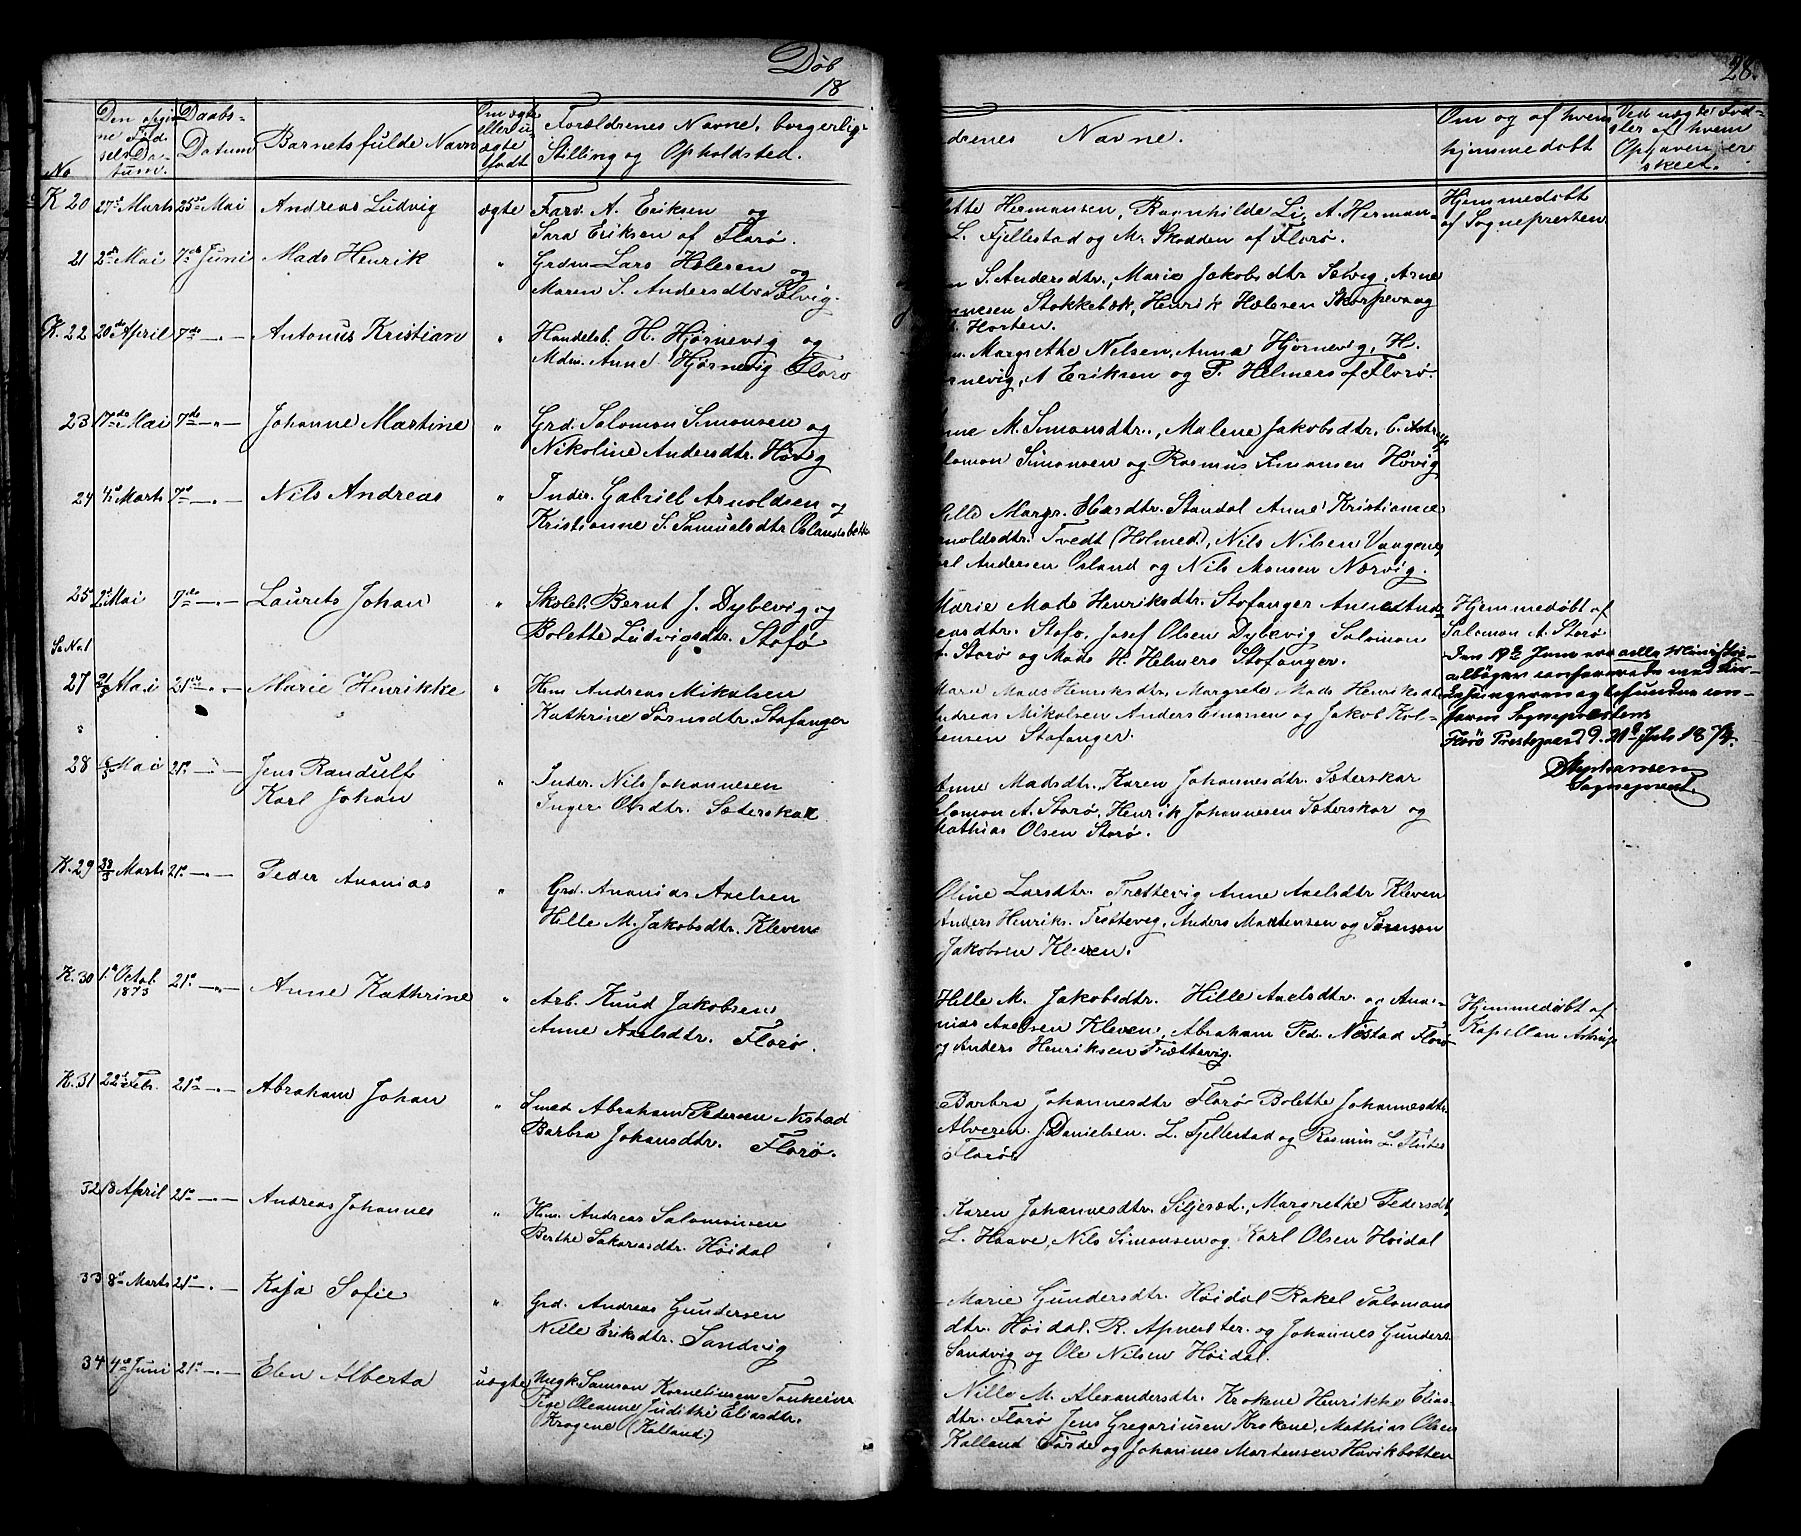 Døb
18
28.
No
Den Segn
ne Fød
sels Da-
tum.
Daabs-
Datum
Barnets fulde Navn
Om ægte
eller u-
ægte
født
Forældrenes Navne, borgerlig-
Stilling og Opholdsted.
drenes Navne.
Om og af hvem
hjemmedøbt
Ved uægte Fød-
sler af hvem
Opgaven er
skeet.
K 20 27de Marts 25de Mai Andreas Ludvig ægte Farv. A. Eriksen og
Sara Eriksen af Florø.
lette Hermansen, Ragnhilde Li, A. Herman-
L. Fjellestad og M. Skodden af Florø.
Hjemmedøbt
af Sognepresten
21 2de Mai 7de Juni Mads Henrik " Grdm. Lars Helesen og
Maren S. Andersdtr. Sælvig.
n S. Andersdtr., Marie Jakobsdtr Sælvig, Arne
nnesen Stokkebæk, Henrik Hælesen Skorpen og
Horten.
K. 22 20de April 7de -"- Antonus Kristian " Handelsb. H. Hjørnevig og
Mdm. Anne Hjørnevig Florø
m. Margrethe Nelsen, Anna Hjørnevig, H.
ørnevig, A Eriksen og P. Helmers af Florø.
23 17de Mai 7de -"- Johanne Martine " Grd. Salomon Simonsen og
Nikoline Andersdtr. Høvig
nne M. Simonsdtr., Malene Jakobsdtr,
alomon Simonsen og Rasmus Simonsen Høvig
24 Marts 7de -"- Nils Andreas " Inder. Gabriel Arnoldsen og
Kristianne S. Samuelsdtr Oslandsbotten
Hille Margr. Hansdtr. Standal Anne Kristianne
rnoldsdtr. Tvedt (Holmed), Nils Nilsen Vangene
Andersen Osland og Nils Monsen Nærvig.
25 2de Mai 7de -"- Laurits Johan " Skolel. Bernt J. Dybevig og
Bolette Ludvigsdtr. Stafø
Marie Mads Henriksdtr. Stafanger
ensdtr. Stafø. Josef Olsen Dybevig Salomon
Storø og Mads H. Helmers Stafanger.
Hjemmedøbt af
Salomon A. Storø
Se No. 1
27 Mai 21de -"- Marie Henrikke " Hsm Andreas Mikalsen
Kathrine Sørnsdtr. Stafanger
Marie Mads Henriksdtr., Margrete Mads Henriksdt
Andreas Mikalsen Anders Emonsen og Jakob Kol-
bensen Stafanger.
Den 19de Juni ere alle Ministeri-
albøgen conformerede med
og befundne con-
form Sognepræstens
Florø Prestegaard d. 21de Juli 1874.
Sognepræst.
28 Mai 21de " Jens Randulf
Karl Johan " Inder. Nils Johannesen
Inger Olsdtr. Sæterskar
Anne Madsdtr., Karen Johannesdtr. Sæterskar
Salomon A. Storø, Henrik Johannesen Sæterskar og
Mathias Olsen Storø.
K. 29 28/3 Marts 21de -"- Peder Ananias " Grd. Ananias Axelsen
Hille M. Jakobsdtr. Kleven
Oline Larsdtr. Trættevig Anne Axelsdtr Kleven
Anders Henriks. Trættevig, Anders Martensen og
Jakobsen Kleven.
K. 30 1de Octob.
1873 21de -"- Anne Kathrine " Arb. Knud Jakobsen
Anne Axelsdtr. Florø.
Hille M. Jakobsdtr. Hille Axelsdtr. og Ana-
nias Axelsen Kleven, Abraham Ped. Nøstad Florø
og Anders Henriksen Trættevig.
Hjemmedøbt af
Kapellan Astrup
K. 31 22de Febr. 21de -"- Abraham Johan " Smed Abraham Pedersen Nøstad
Barbra Johansdtr. Florø.
Barbra Johannesdtr Florø Bolette Johannesdtr.
Alveren. J. Danielsen. L. Fjellestad og Rasmus L.
Florø
32 18 April 21de -"- Andreas Johannes " Hsm. Andreas Salomonsen
Berthe Sakariasdtr. Høidal
Karen Johannesdtr. Siljesæt., Margrethe Pedersdt
L. Haave, Nils Simonsen og Karl Olsen Høidal
33 8de Marts 21de -"- Kaja Sofie " Grd. Andreas Gundersen
Nille Eriksdtr. Sandvig
Marie Gundersdtr. Høidal Rakel Salomons
dtr. Høidal. R. Apnesster. og Johannes Gunders.
Sandvig og Ole Nilsen Høidal.
34 4de Juni 21de -"- Elen Alberta uægte Ungk. Samson Korneliussen Tonheim
Pige Oleanne Judithe Eliasdtr.
Krogene (Kalland)
Nille M. Alexandersdtr. Krokene Henrikke Elias
dtr. Florø Jens Gregoriusen Krokene, Mathias Olsen
Kalland Førde og Johannes Mortensen Havikbotten